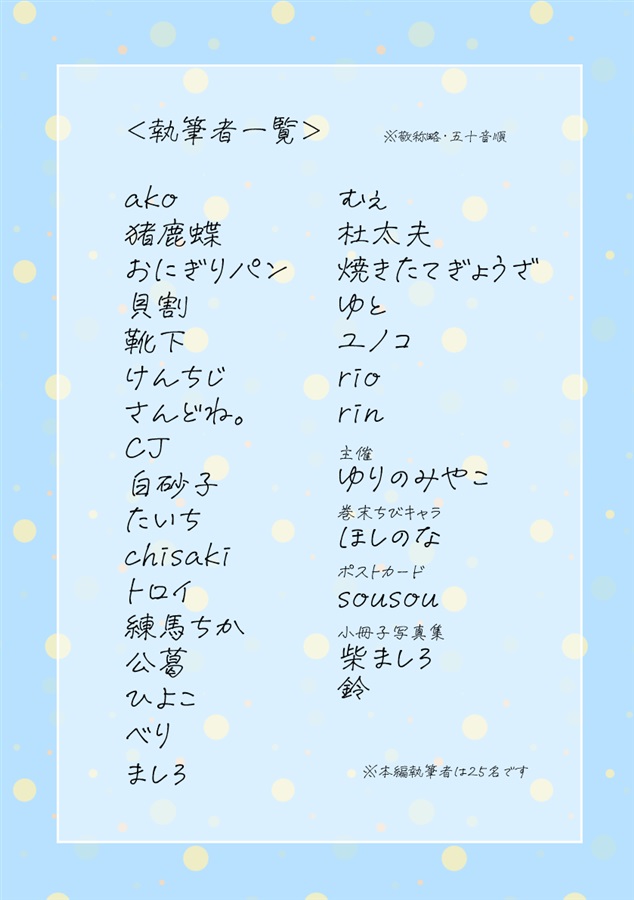 <執筆者一覧>
※敬称略・五十音順
ako
猪鹿蝶
おにぎりパン
貝割
靴下
けんちじ
さんどね。
CJ
白砂子
たいち
chisaki
トロイ
練馬ちか
公葛
ひよこ
べり
ましろ
むぇ
杜太夫
焼きたてぎょうざ
ゆと
ユノコ
rio
rin
主催
ゆりのみやこ
巻末ちびキャラ
ほしのな
ポストカード
sousou
小冊子写真集
柴ましろ
鈴
※本編執筆者は25名です